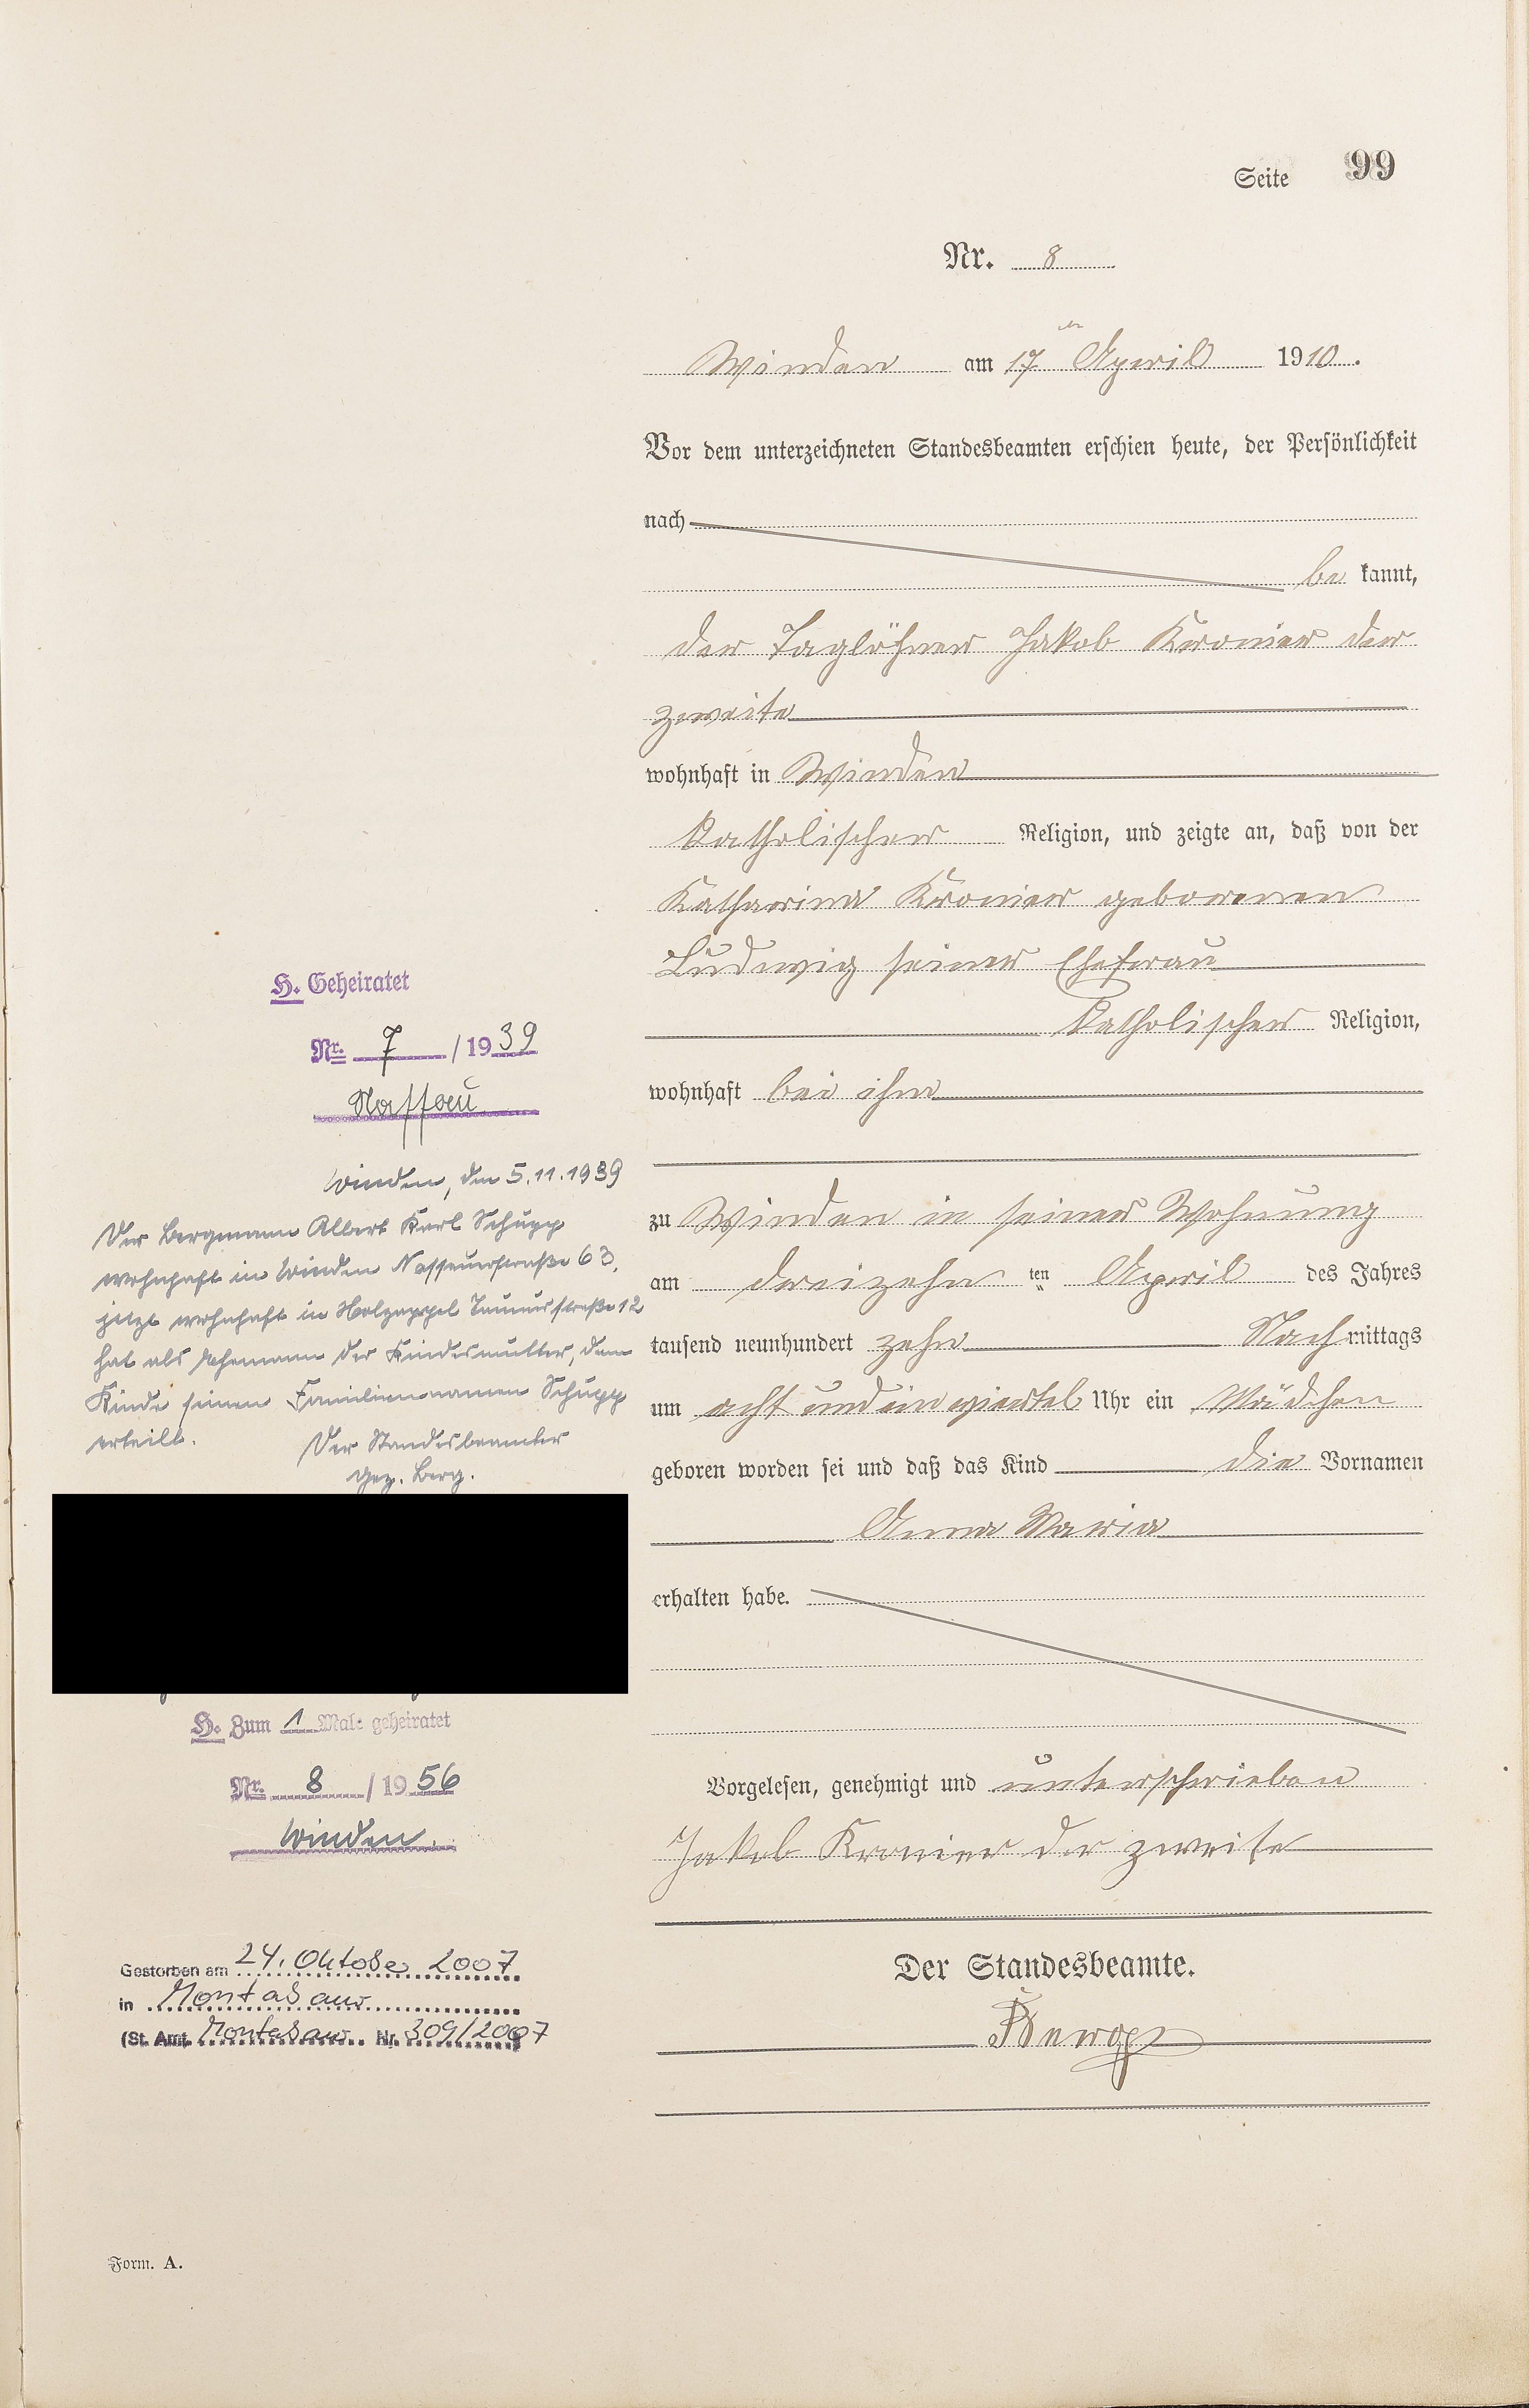 Seite 99
Nr. 8
Winden am 17ten April 1910.
Vor dem unterzeichneten Standesbeamten erschien heute, der Persönlichkeit
nach
be kannt,
der Taglöhner Jakob Kronier der
zweite
wohnhaft in Winden
katholischer Religion, und zeigte an, daß von der
Katharina Kronier geborenen
Ludwig seiner Ehefrau
katholischer Religion,
wohnhaft bei ihm
zu Winden in seiner Wohnung
am dreizehn ten April des Jahres
tausend neunhundert zehn Nach mittags
um acht und ein viertel Uhr ein Mädchen
geboren worden sei und daß das Kind die Vornamen
Anna Maria
erhalten habe.
Vorgelesen, genehmigt und unterschrieben
Jakob Kronier der zweite
Der Standesbeamte.
Berg
H. Geheiratet
Nr. 7 / 1939
Nassau
Winden, den 5.11.1939
Der Bergmann Albert Karl Schupp
wohnhaft in Winden Nassauerstraße 63,
jetzt wohnhaft in Holzappel Taunusstraße 12
hat als Ehemann der Kindesmutter, dem
Kinde seinen Familiennamen Schupp
erteilt.
Der Standesbeamter
gez. Berg.
H. Zum 1 Male geheiratet
Nr. 8 / 1956
Winden.
Gestorben am 24. Oktober 2007
in Montabaur
(St. Amt. Montabaur Nr. 309/2007
Form. A.